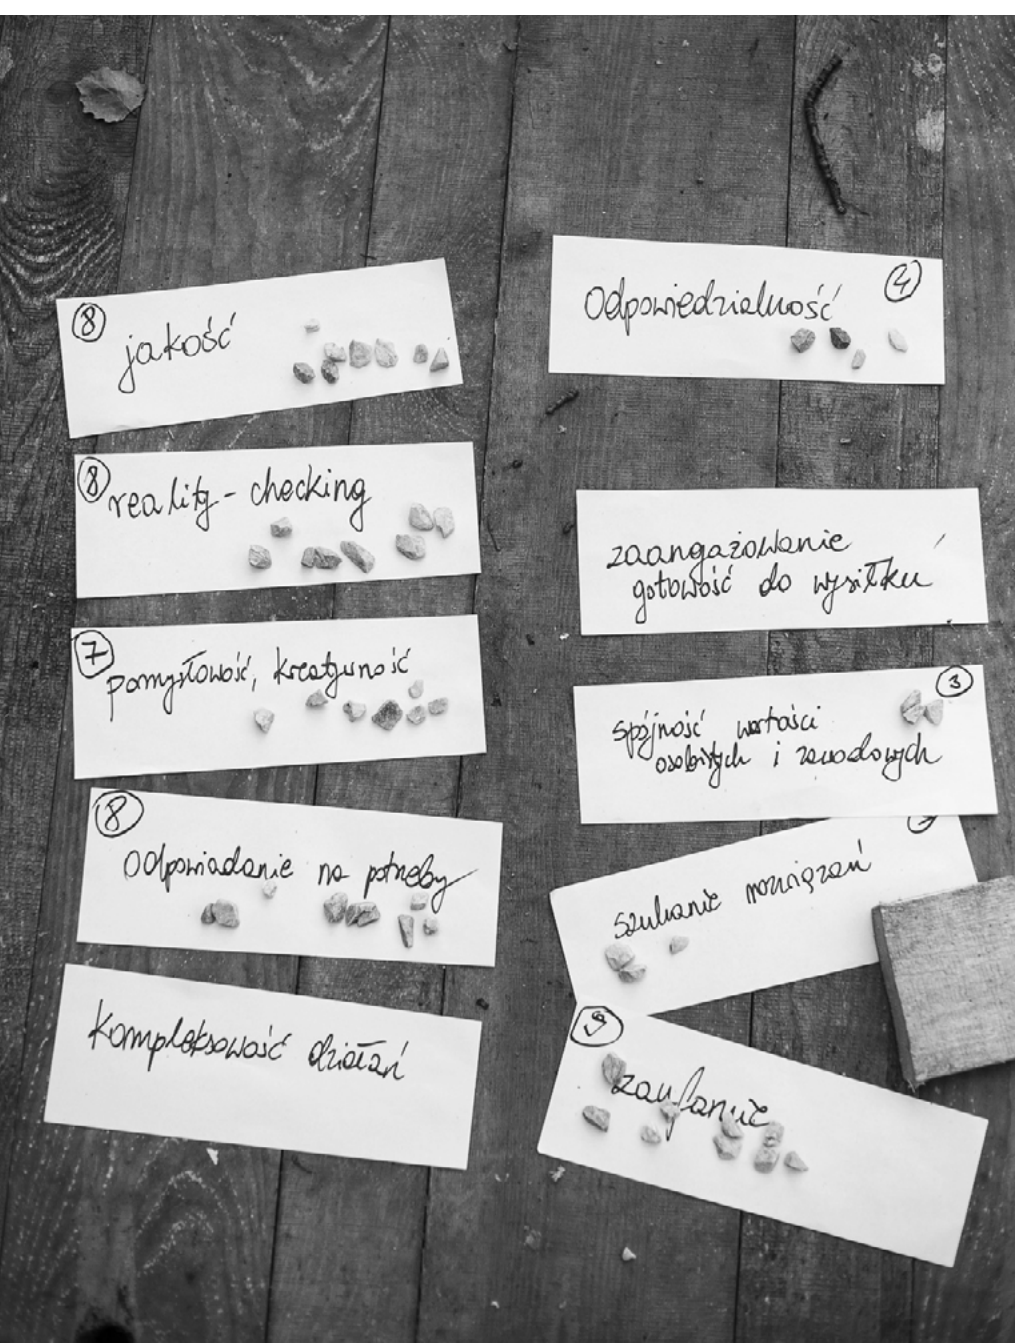 8
jakość
8
reality - checking
7
pomysłowość, kreatywność
8
Odpowiadanie na potrzeby
Kompleksowość działań
4
Odpowiedzialność
zaangażowanie
gotowość do wysiłku
3
spójność wartości
osobistych i zawodowych
szukanie rozwiązań
9
zaufanie